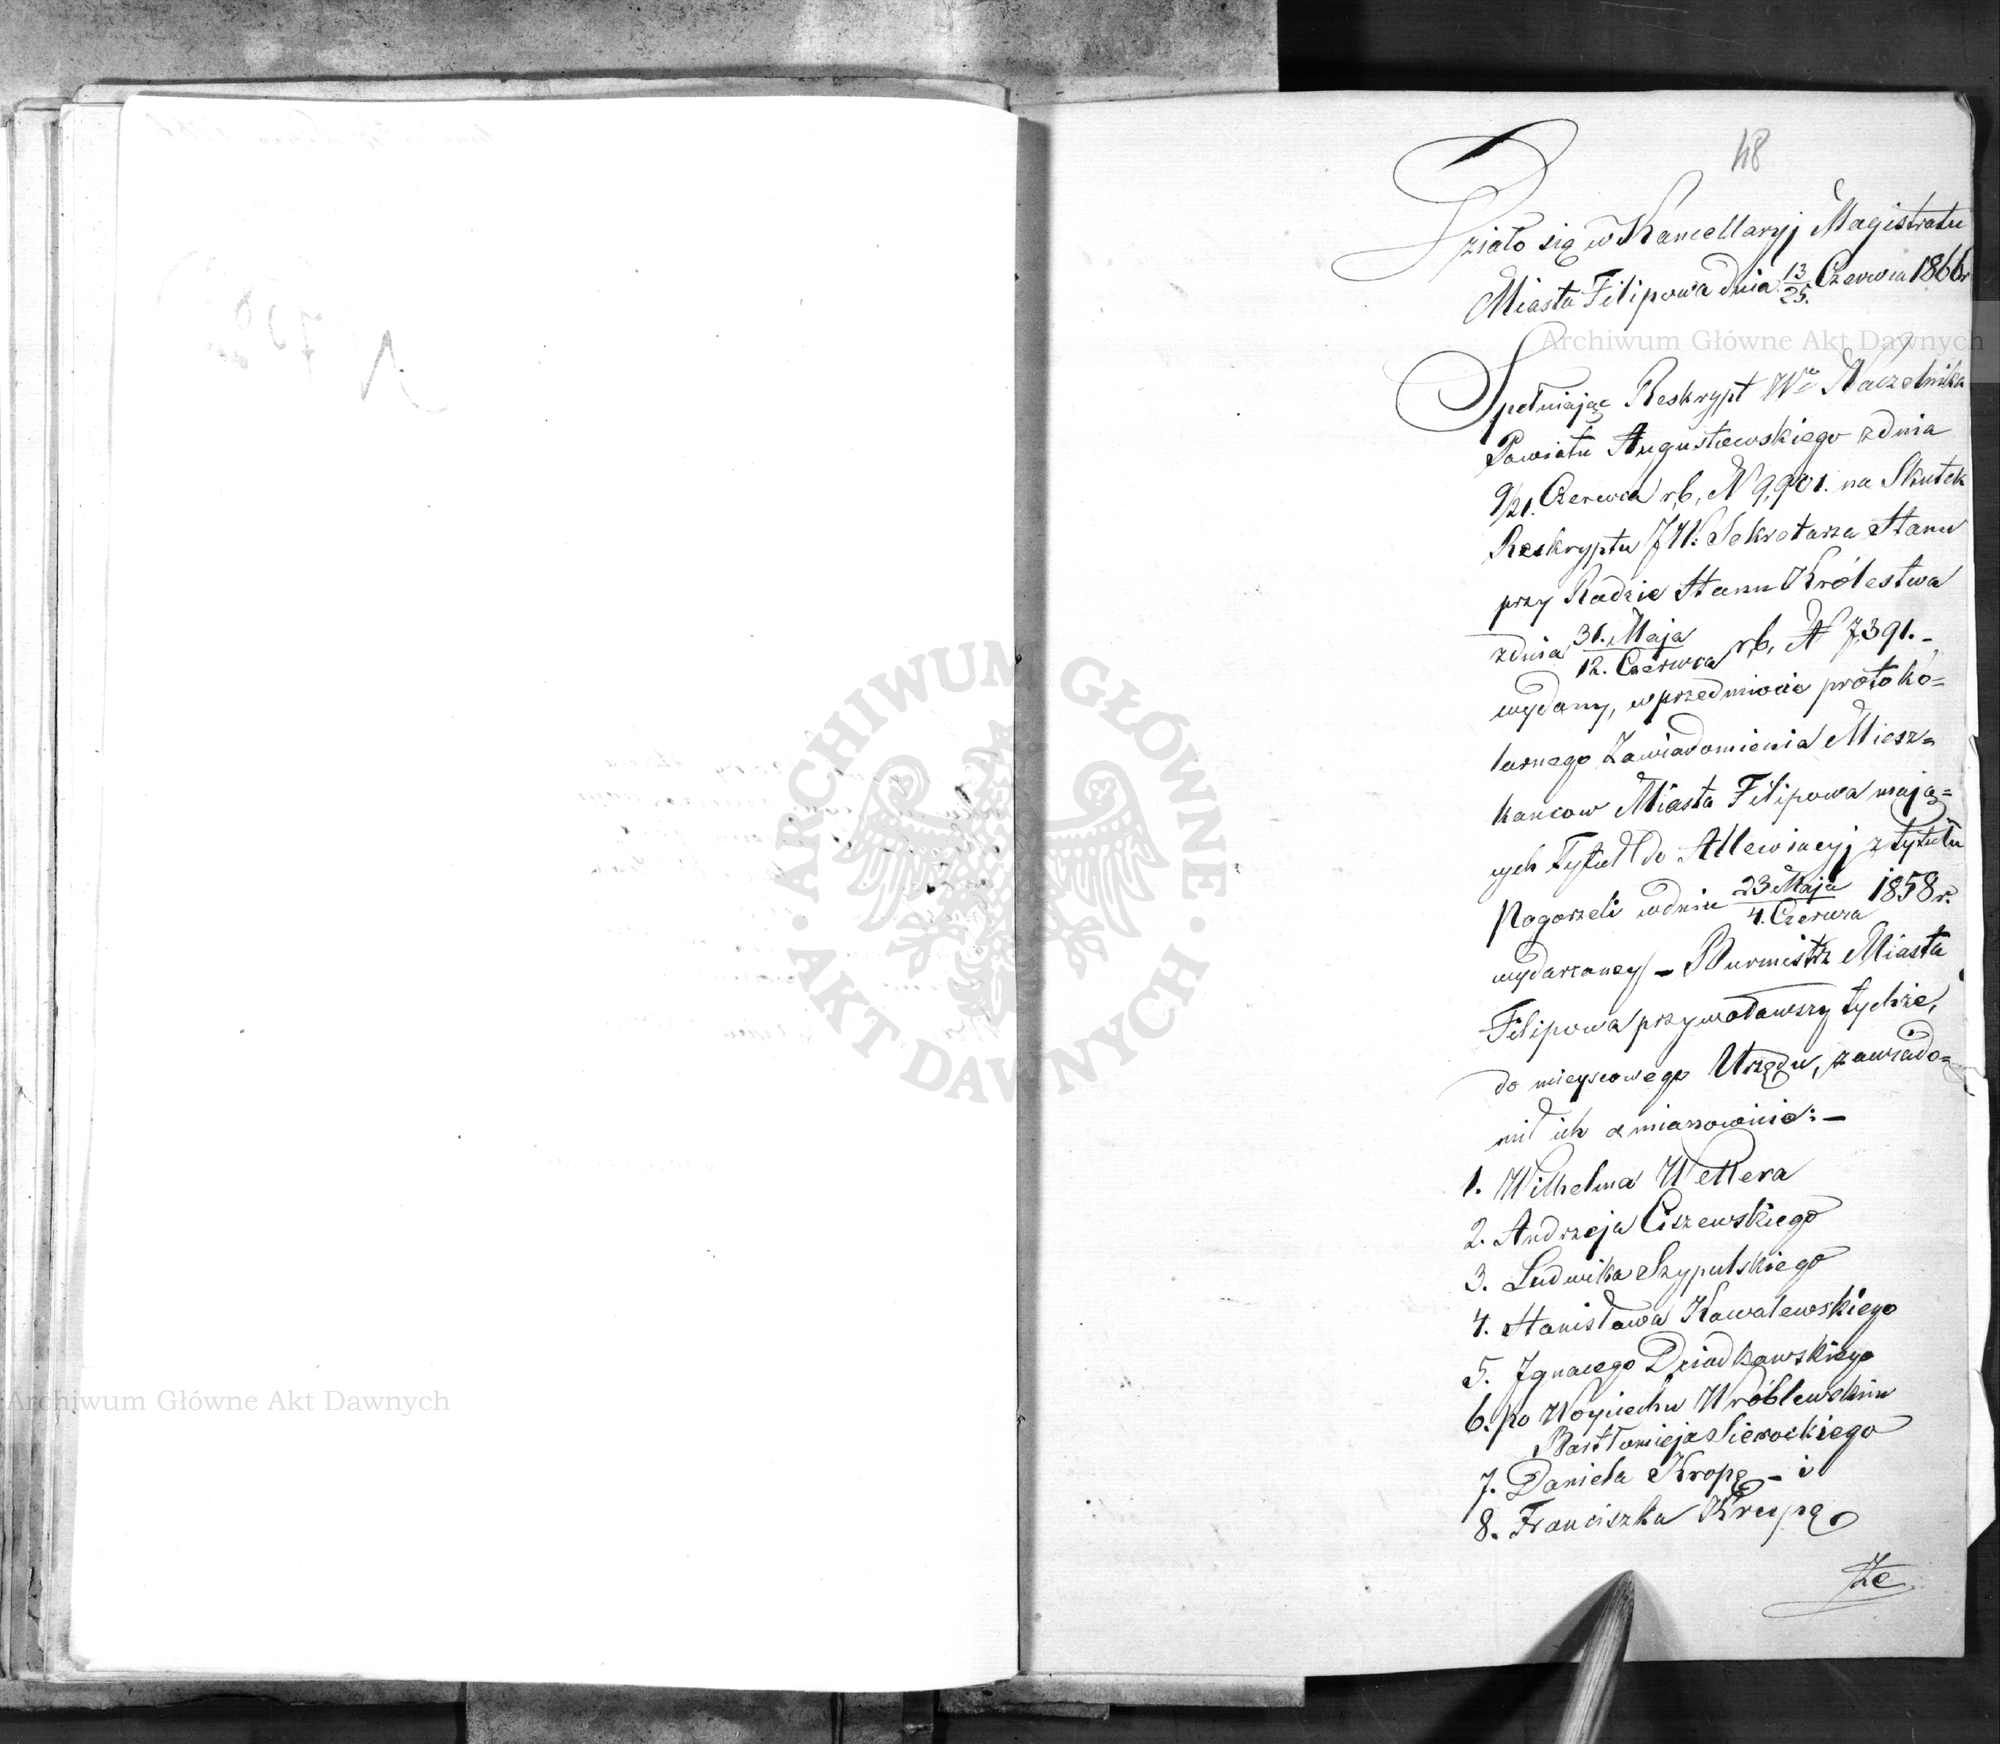 48
Działo się w Kancellaryj Magistratu
Miasta Filipowa dnia 13/25. Czerwca 1866r
Spełniając Reskrypt Wo Naczelnika
Powiatu Augustowskiego z dnia
9/21. Czerwca r.b. N 9,901. na Skutek
Reskryptu JW: Sekretarza Stanu
przy Radzie Stanu Królestwa
z dnia 31. Maja/12. Czerwca r.b. N 7,391. –
wydany, w przedmiocie protokó=
larnego Zawiadomienia Miesz=
kancow Miasta Filipowa mają=
cych Tytuł do Allewiacyj z tytułu
Pogorzeli w dniu 23 Maja/4. Czerwca 1858 r.
wydarzoney – Burmistrz Miasta
Filipowa przywoławszy tychże,
do mieyscowego Urzędu, zawiado=
mił ich a mianowicie: –
1. Wilhelma Wellera
2. Andrzeja Ciszewskiego
3. Ludwika Szypulskiego
4. Stanisława Kowalewskiego
5. Ignacego Dziadkowskiego
6. po Woyciechu Wróblewskim
Bartłomieja Sierockiego
7. Daniela Kropę – i
8. Franciszka Krupę
Że
Archiwum Główne Akt Dawnych
ARCHIWUM GŁÓWNE · AKT DAWNYCH ·
Archiwum Główne Akt Dawnych